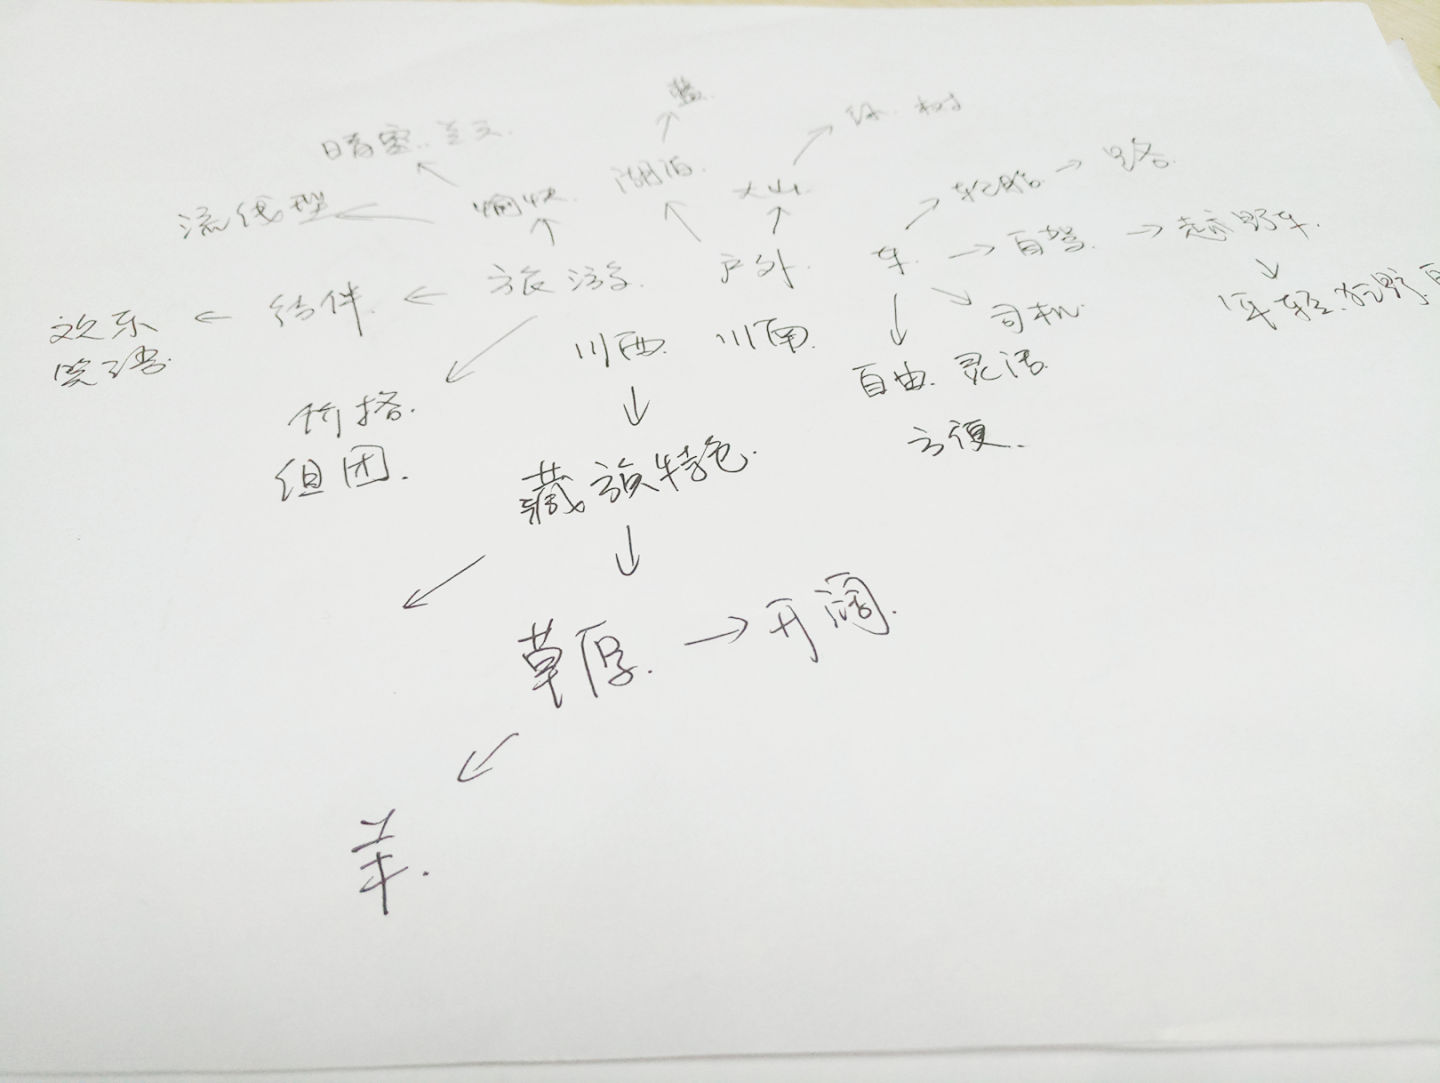 蓝.
绿. 树
湖泊.
大山.
轮胎. 路.
愉快.
流线型
旅游. 户外. 车. 自驾. 越野车.
结伴.
欢乐
笑语.
司机.
年轻.
川西. 川南.
自由. 灵活.
方便.
价格.
组团.
藏族特色.
草原. 开阔.
羊.